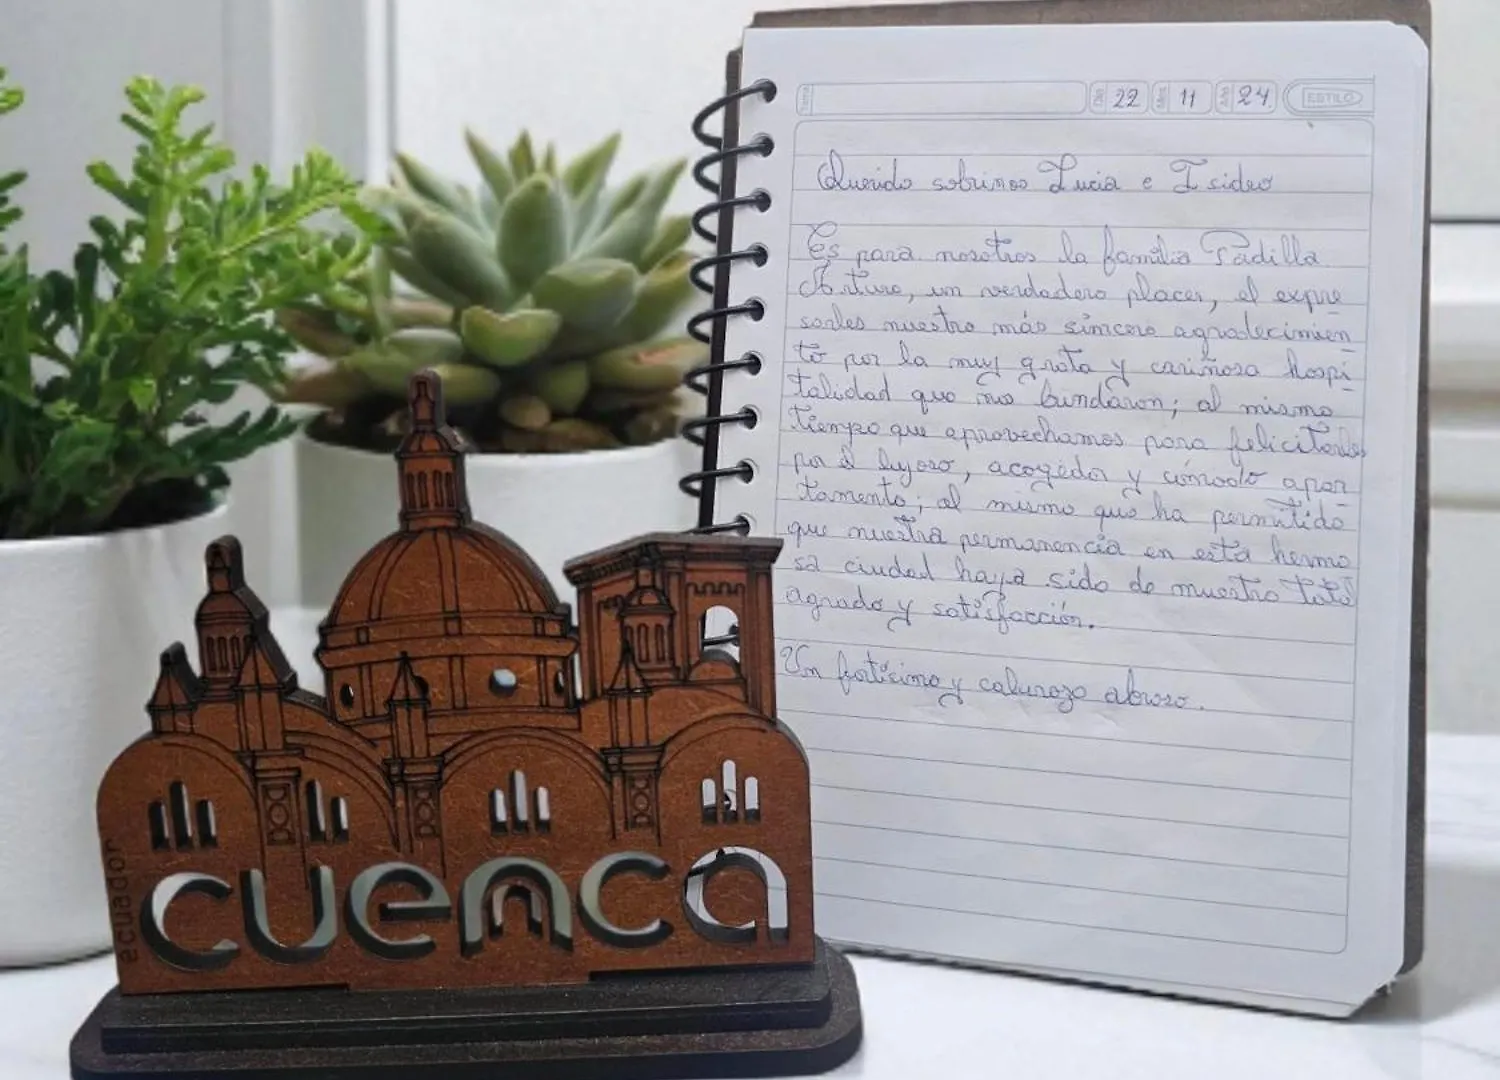 Tema Día 22 Mes 11 Año 24 ESTILO
Querido sobrinos Lucia e Isidro
Es para nosotros la familia Padilla
Arturo, un verdadero placer, el expre
sarles nuestro más sincero agradecimien
to por la muy grata y cariñosa hospi
talidad que nos bundaron; al mismo
tiempo que aprovechamos para felicitarles
por el lujoso, acogedor y cómodo apar
tamento; el mismo que ha permitido
que nuestra permanencia en esta hermo
sa ciudad haya sido de nuestro total
agrado y satisfacción.
Un fortísimo y caluroso abrazo.
ecuador
cuenca